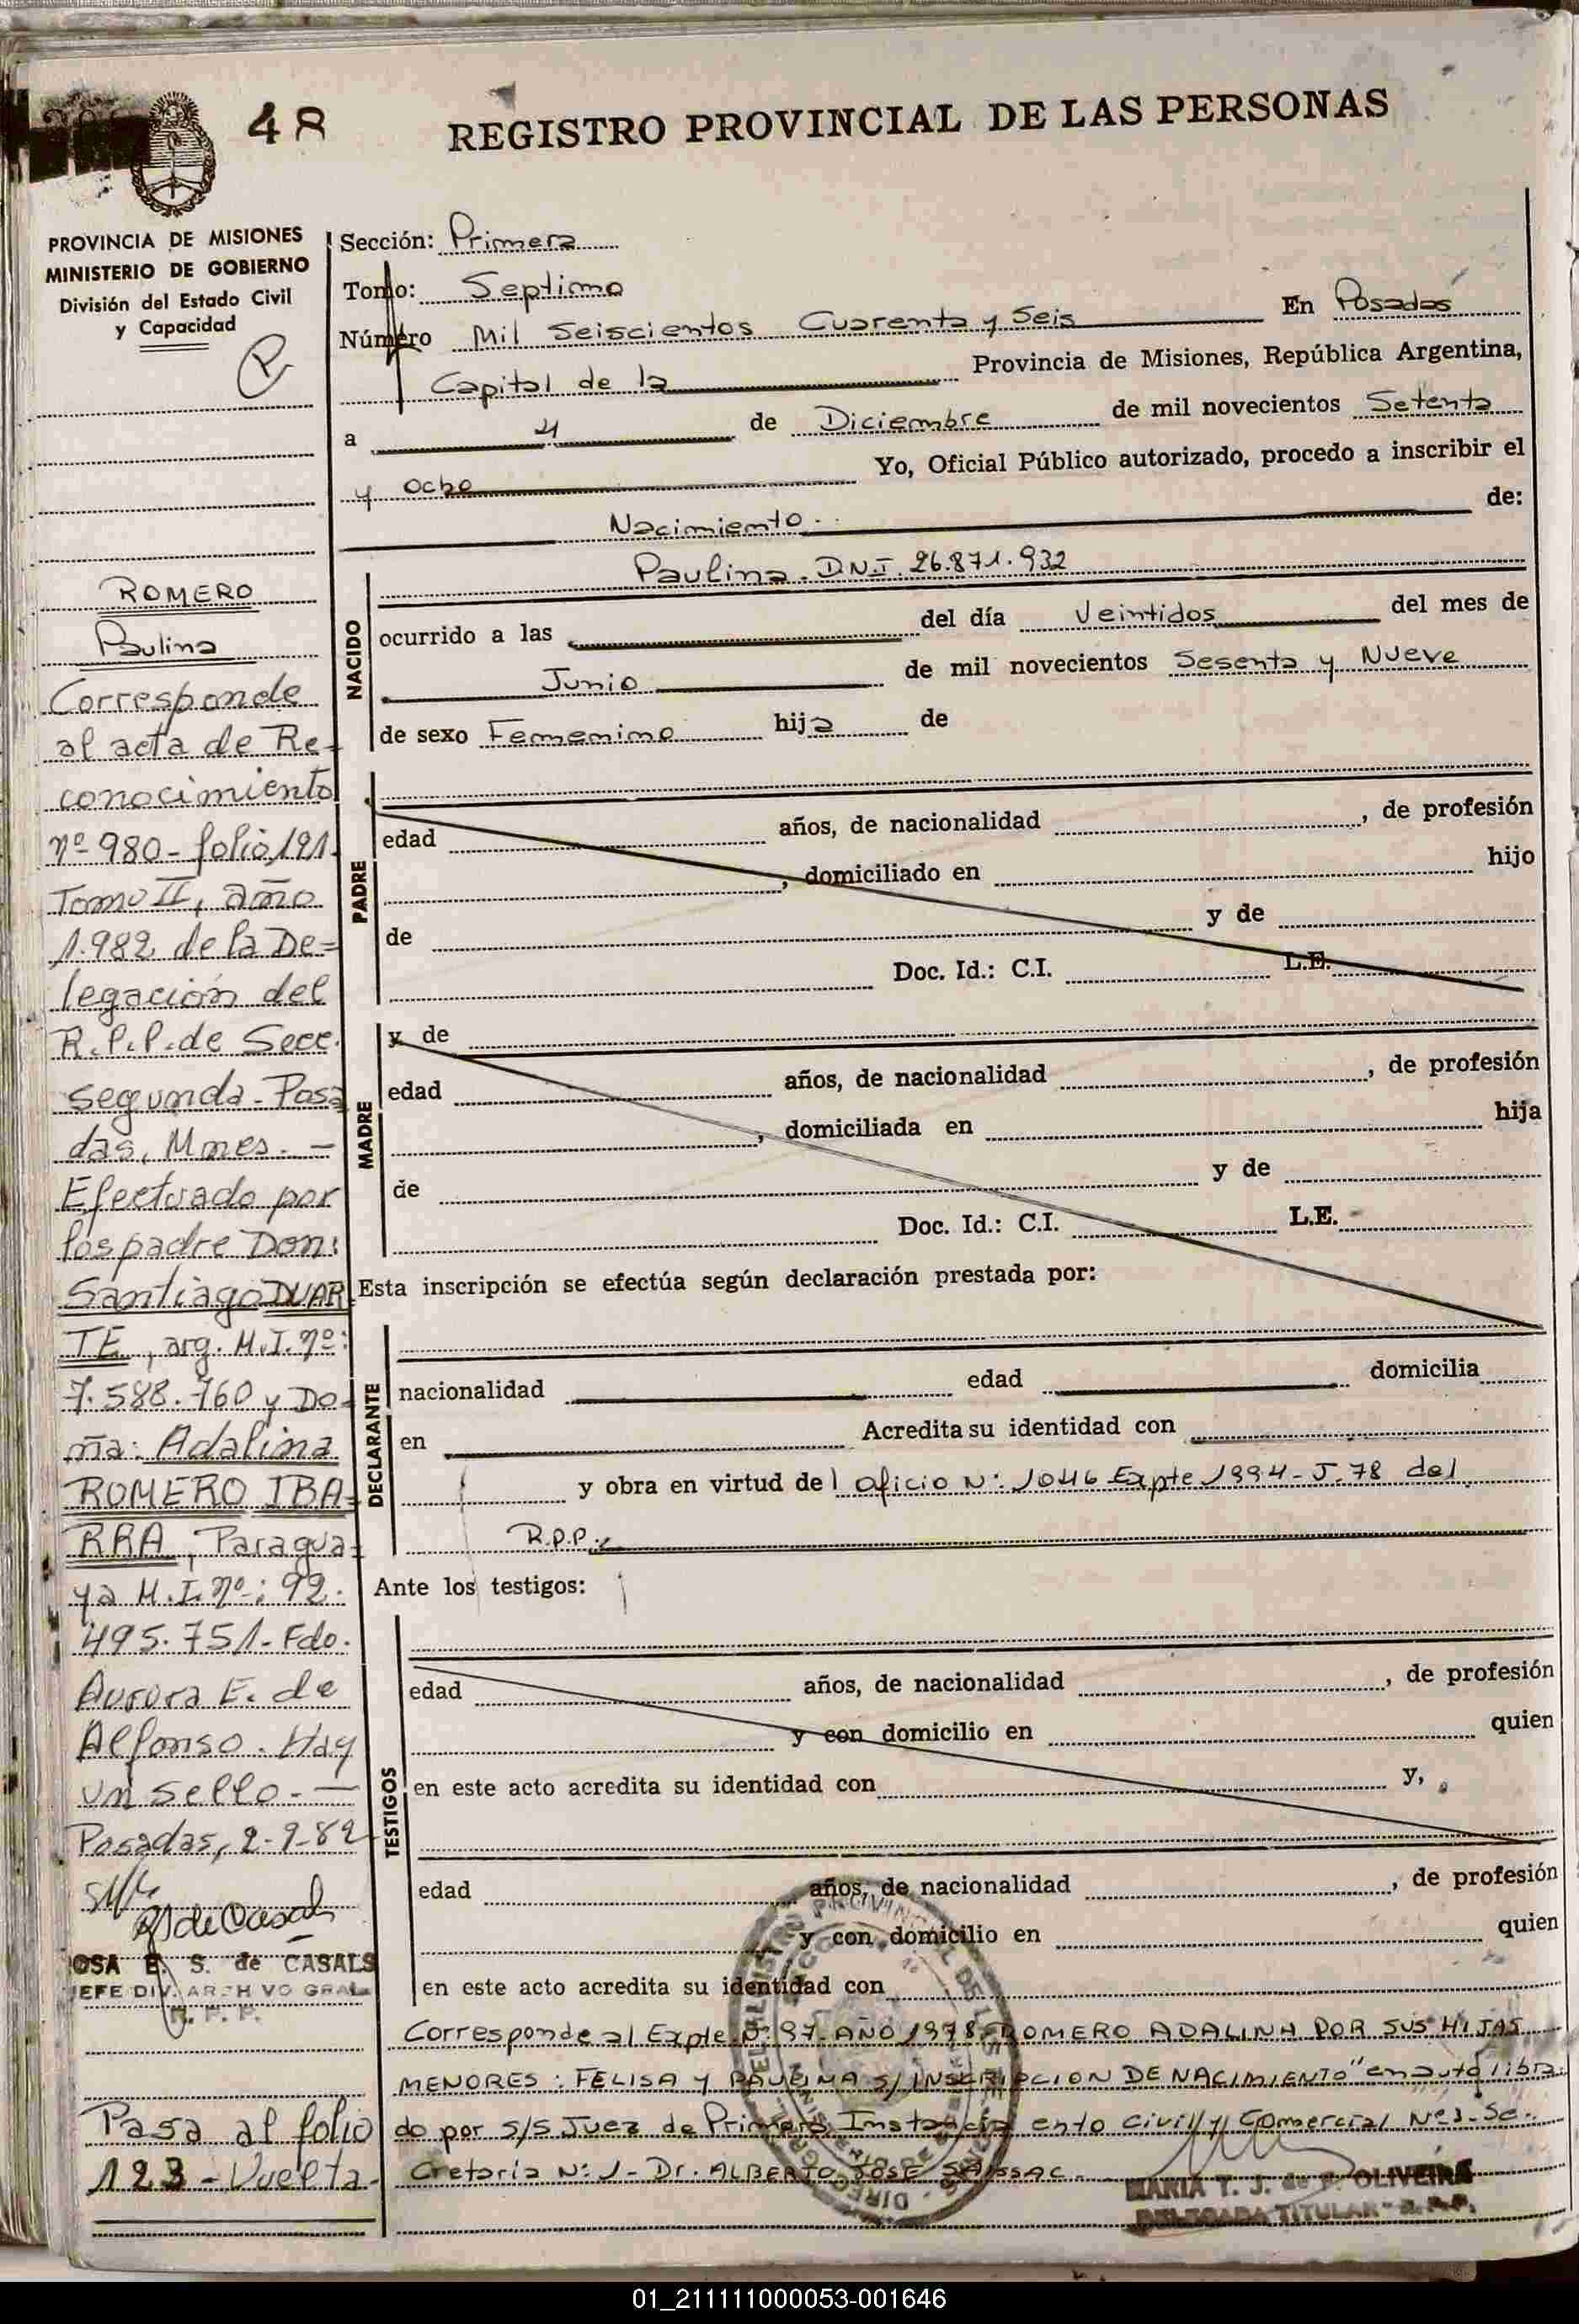 48
REGISTRO PROVINCIAL DE LAS PERSONAS
PROVINCIA DE MISIONES
MINISTERIO DE GOBIERNO
División del Estado Civil
y Capacidad
Sección: Primera
Tomo: Septimo
Número Mil Seiscientos Cuarenta y Seis En Posadas
Capital de la Provincia de Misiones, República Argentina,
a 4 de Diciembre de mil novecientos Setenta
y Ocho Yo, Oficial Público autorizado, procedo a inscribir el
Nacimiento de:
ROMERO
Paulina
Corresponde
al acta de Re-
conocimiento
nº 980 - folio 121.
Tomo II, año
1.982 de la De=
legación del
R.P.P. de Secc.
segunda - Posa
das, Mnes. -
Efectuado por
los padre Don:
Santiago DUAR
TE, arg. M.I. nº:
7.588.760 y Do-
ña: Adalina
ROMERO IBA-
RRA, Paragua-
ya M.I. nº: 92.
495.751 - Fdo.
Aurora E. de
Alfonso. Hay
un sello. -
Posadas, 2-9-82
OSA E. S. de CASALS
JEFE DIV. ARCHIVO GRAL
R. P. P.
Pasa al folio
123 - Vuelta.
NACIDO
Paulina. D.N.I. 26.871.932
ocurrido a las del día Veintidos del mes de
Junio de mil novecientos Sesenta y Nueve
de sexo Femenino hija de
PADRE
edad años, de nacionalidad , de profesión
, domiciliado en hijo
de y de
Doc. Id.: C.I. L.E.
MADRE
y de
edad años, de nacionalidad , de profesión
, domiciliada en hija
de y de
Doc. Id.: C.I. L.E.
Esta inscripción se efectúa según declaración prestada por:
DECLARANTE
nacionalidad edad domicilia
en Acredita su identidad con
y obra en virtud del Oficio Nº: 1046 Expte 1994-J-78 del
R.P.P.
Ante los testigos:
TESTIGOS
edad años, de nacionalidad , de profesión
y con domicilio en quien
en este acto acredita su identidad con y,
edad años, de nacionalidad , de profesión
y con domicilio en quien
en este acto acredita su identidad con
Corresponde al Expte Nº: 97-AÑO 1978-ROMERO ADALINA POR SUS HIJAS
MENORES: FELISA Y PAULINA S/ INSCRIPCION DE NACIMIENTO" en auto libra
do por S/S Juez de Primera Instancia en lo Civil y Comercial Nº 3-Se-
cretaria Nº: 1 - Dr. ALBERTO JOSE
MARIA T. J. de P. OLIVEIRA
DELEGADA TITULAR - R.P.P.
01_211111000053-001646